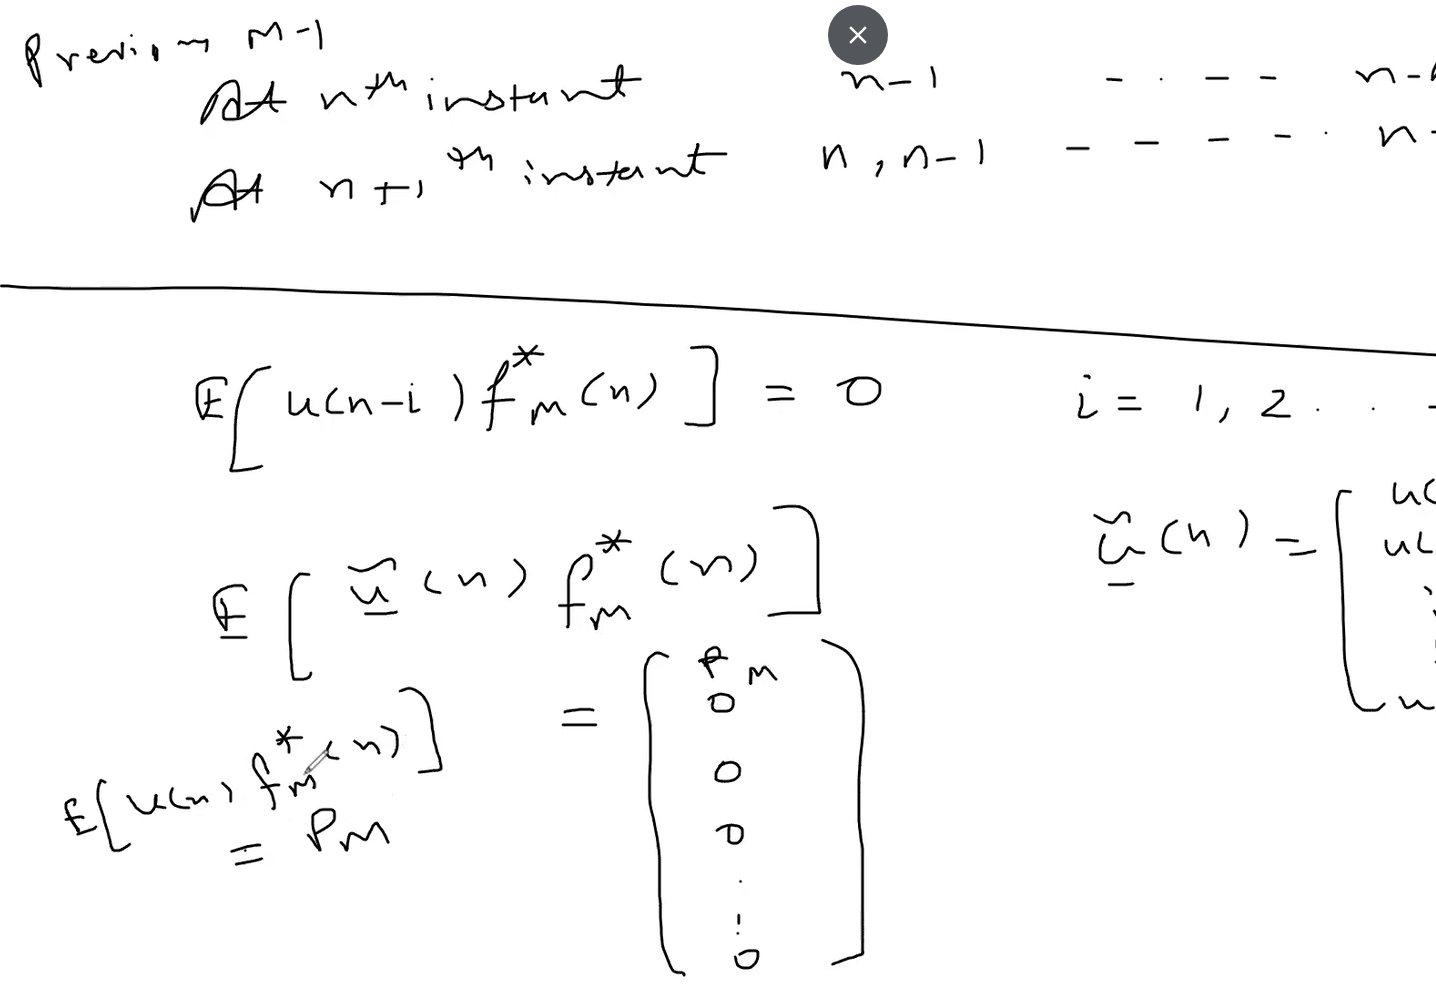 Previous M-1
At nth instant n-1 - . - - n-
At n+1th instant n, n-1 - - - - . n-
E[u(n-i) f*m(n)] = 0 i = 1, 2 . . -
E[ũ(n) f*m(n)] ũ(n) = [u(
u(
:
u
= [Pm
0
0
0
.
:
0]
E[u(n) f*m(n)]
= Pm